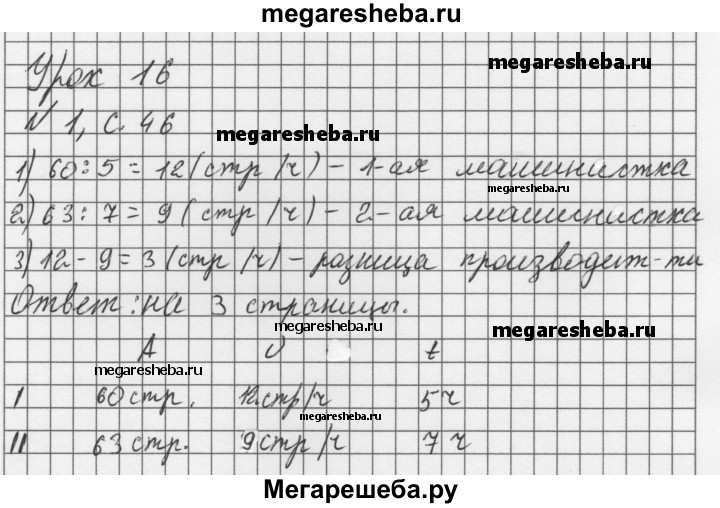 megaresheba.ru
Урок 16
megaresheba.ru
N 1, с. 46
megaresheba.ru
1) 60 : 5 = 12 (стр/ч) – 1-ая машинистка
megaresheba.ru
2) 63 : 7 = 9 (стр/ч) – 2-ая машинистка
3) 12 - 9 = 3 (стр/ч) – разница производит-ти
Ответ: на 3 страницы.
megaresheba.ru
megaresheba.ru
A υ t
megaresheba.ru
I 60 стр. 12 стр/ч 5 ч
megaresheba.ru
II 63 стр. 9 стр/ч 7 ч
Мегарешеба.ру